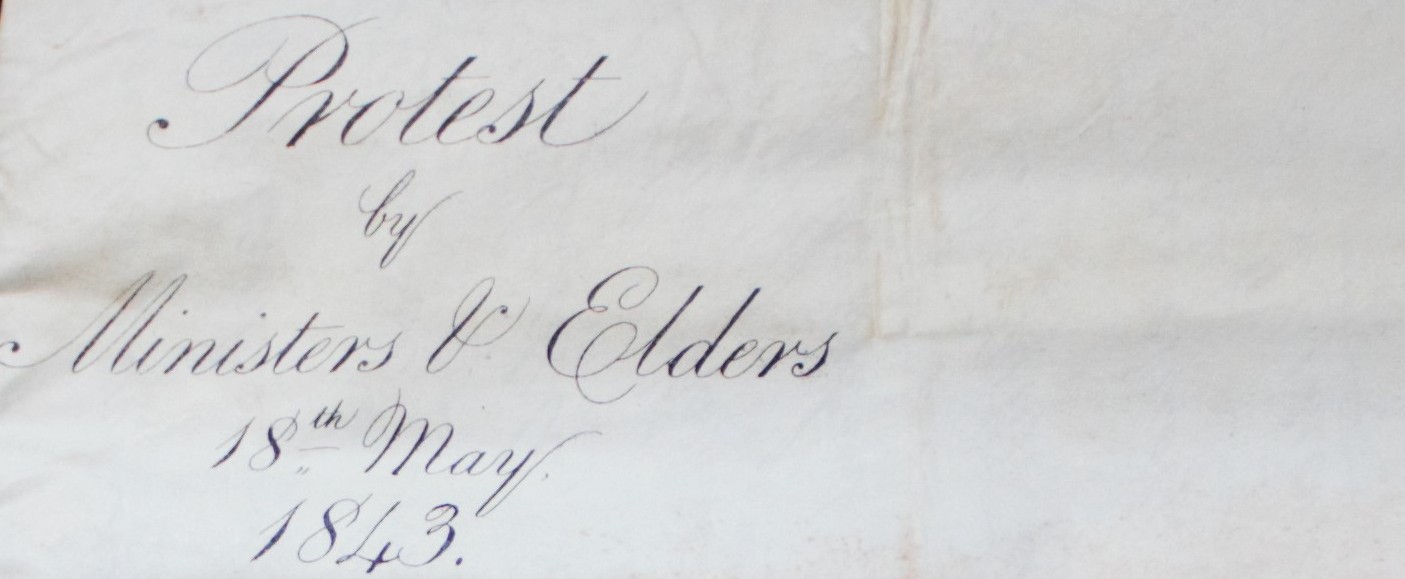 Protest
by
Ministers & Elders
18th May.
1843.